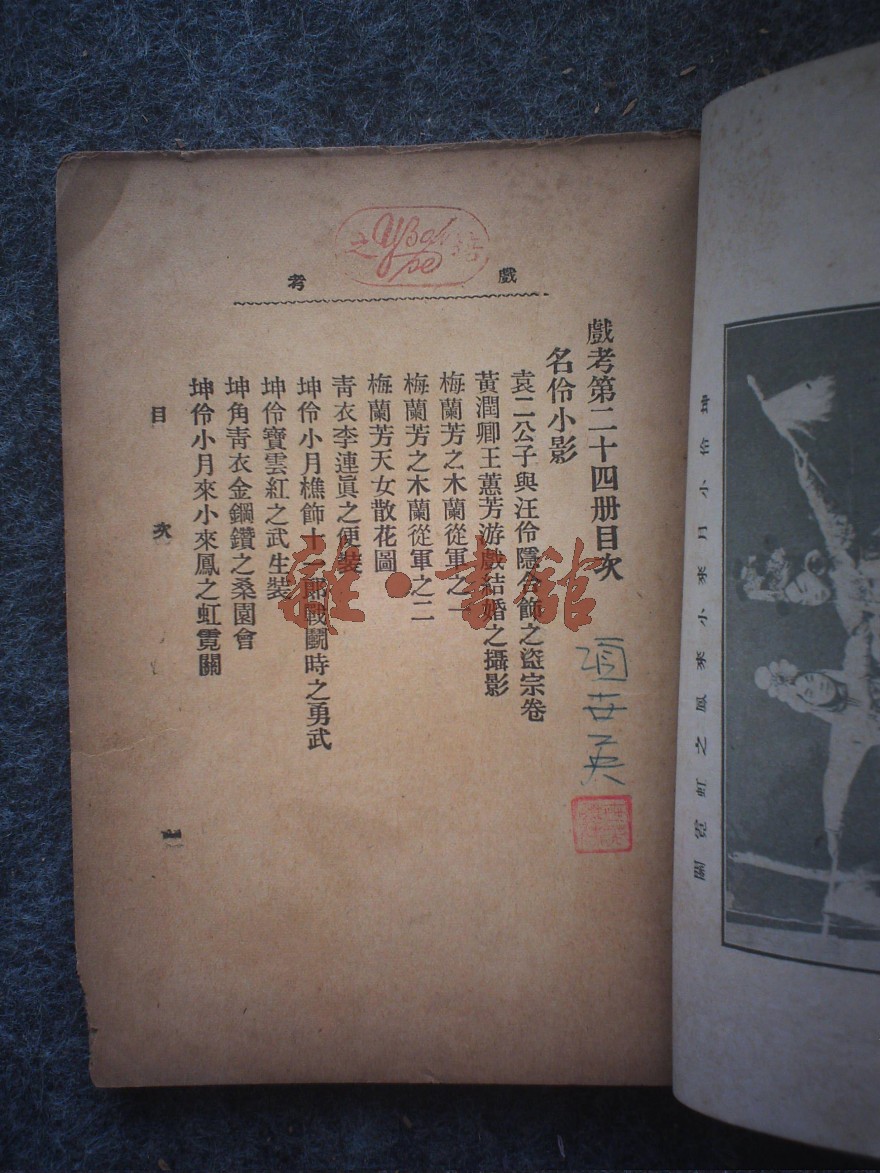 戲考
戲考第二十四册目次
名伶小影
袁二公子與汪伶隱合飾之盜宗卷
黃潤卿王蕙芳游戲結婚之攝影
梅蘭芳之木蘭從軍之一
梅蘭芳之木蘭從軍之二
梅蘭芳天女散花圖
青衣李連眞之便裝
坤伶小月樵飾十一郎戰鬪時之勇武
坤伶寶雲紅之武生裝
坤角靑衣金鋼鑽之桑園會
坤伶小月來小來鳳之虹霓關
目次
一
項世英
雜·書館
坤伶小月來小來鳳之虹霓關